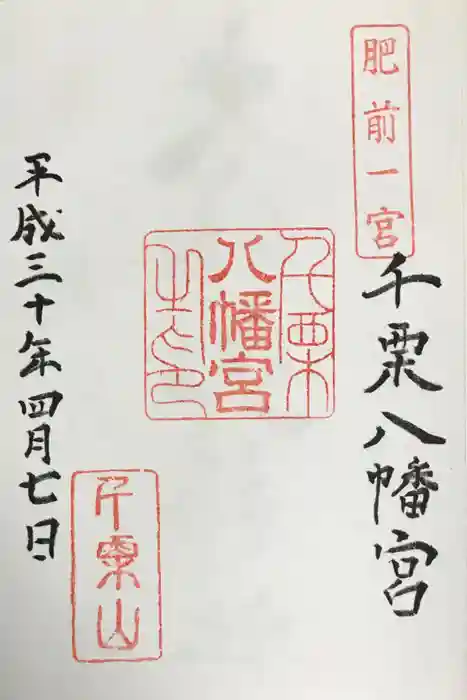 肥前一宮
千栗八幡宮
千栗
八幡宮
之印
千栗山
平成三十年四月七日